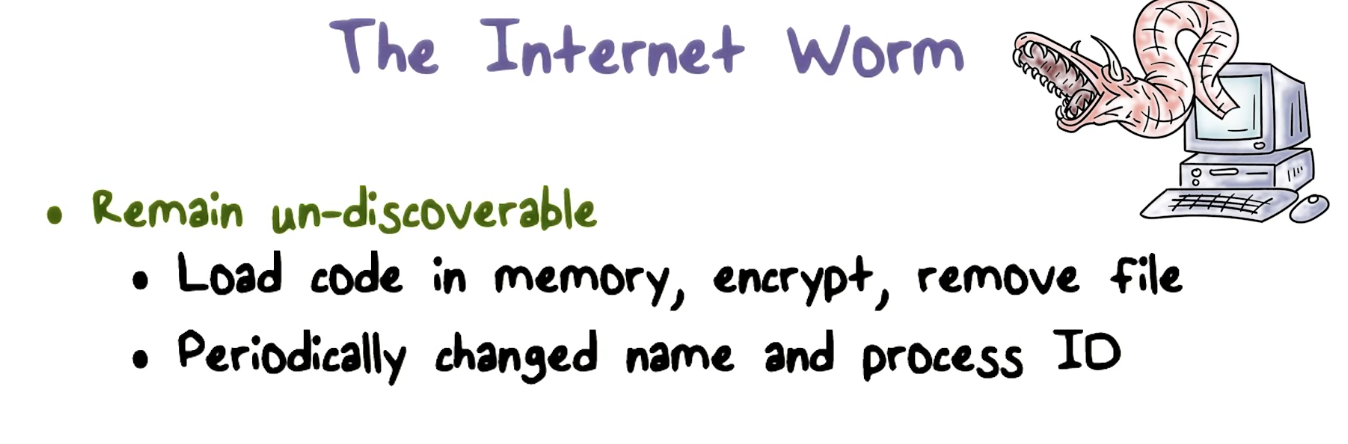 The Internet Worm
• Remain un-discoverable
• Load code in memory, encrypt, remove file
• Periodically changed name and process ID